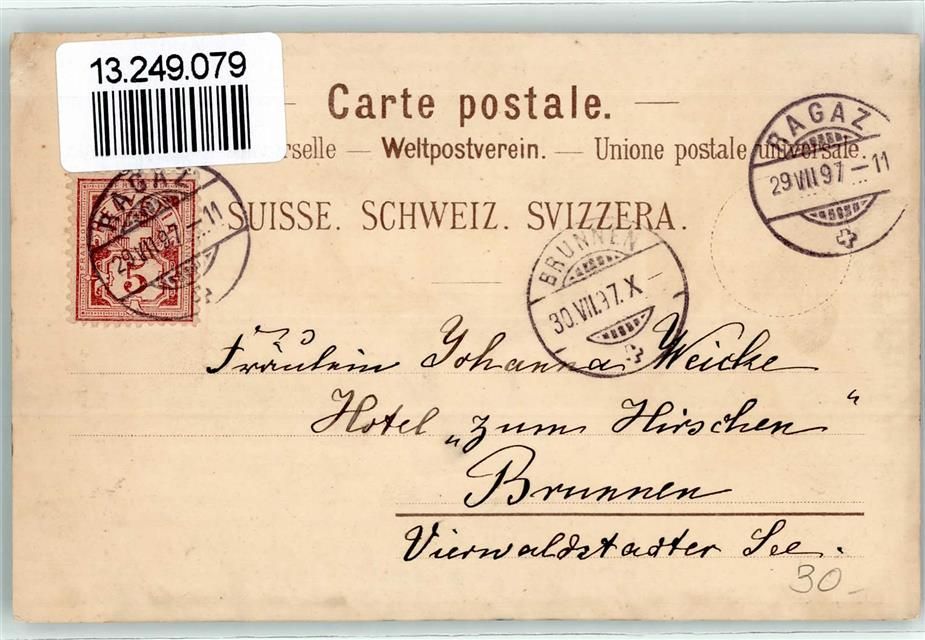 13.249.079
Carte postale.
rselle — Weltpostverein. — Unione postale universale.
RAGAZ
29 VII 97 – 11
RAGAZ
29 VII 97 – 11
5
SUISSE. SCHWEIZ. SVIZZERA.
BRUNNEN
30. VII. 97. X
Fräulein Johanna Weicke
Hotel „zum Hirschen“
Brunnen
Vierwaldstadter See.
30-